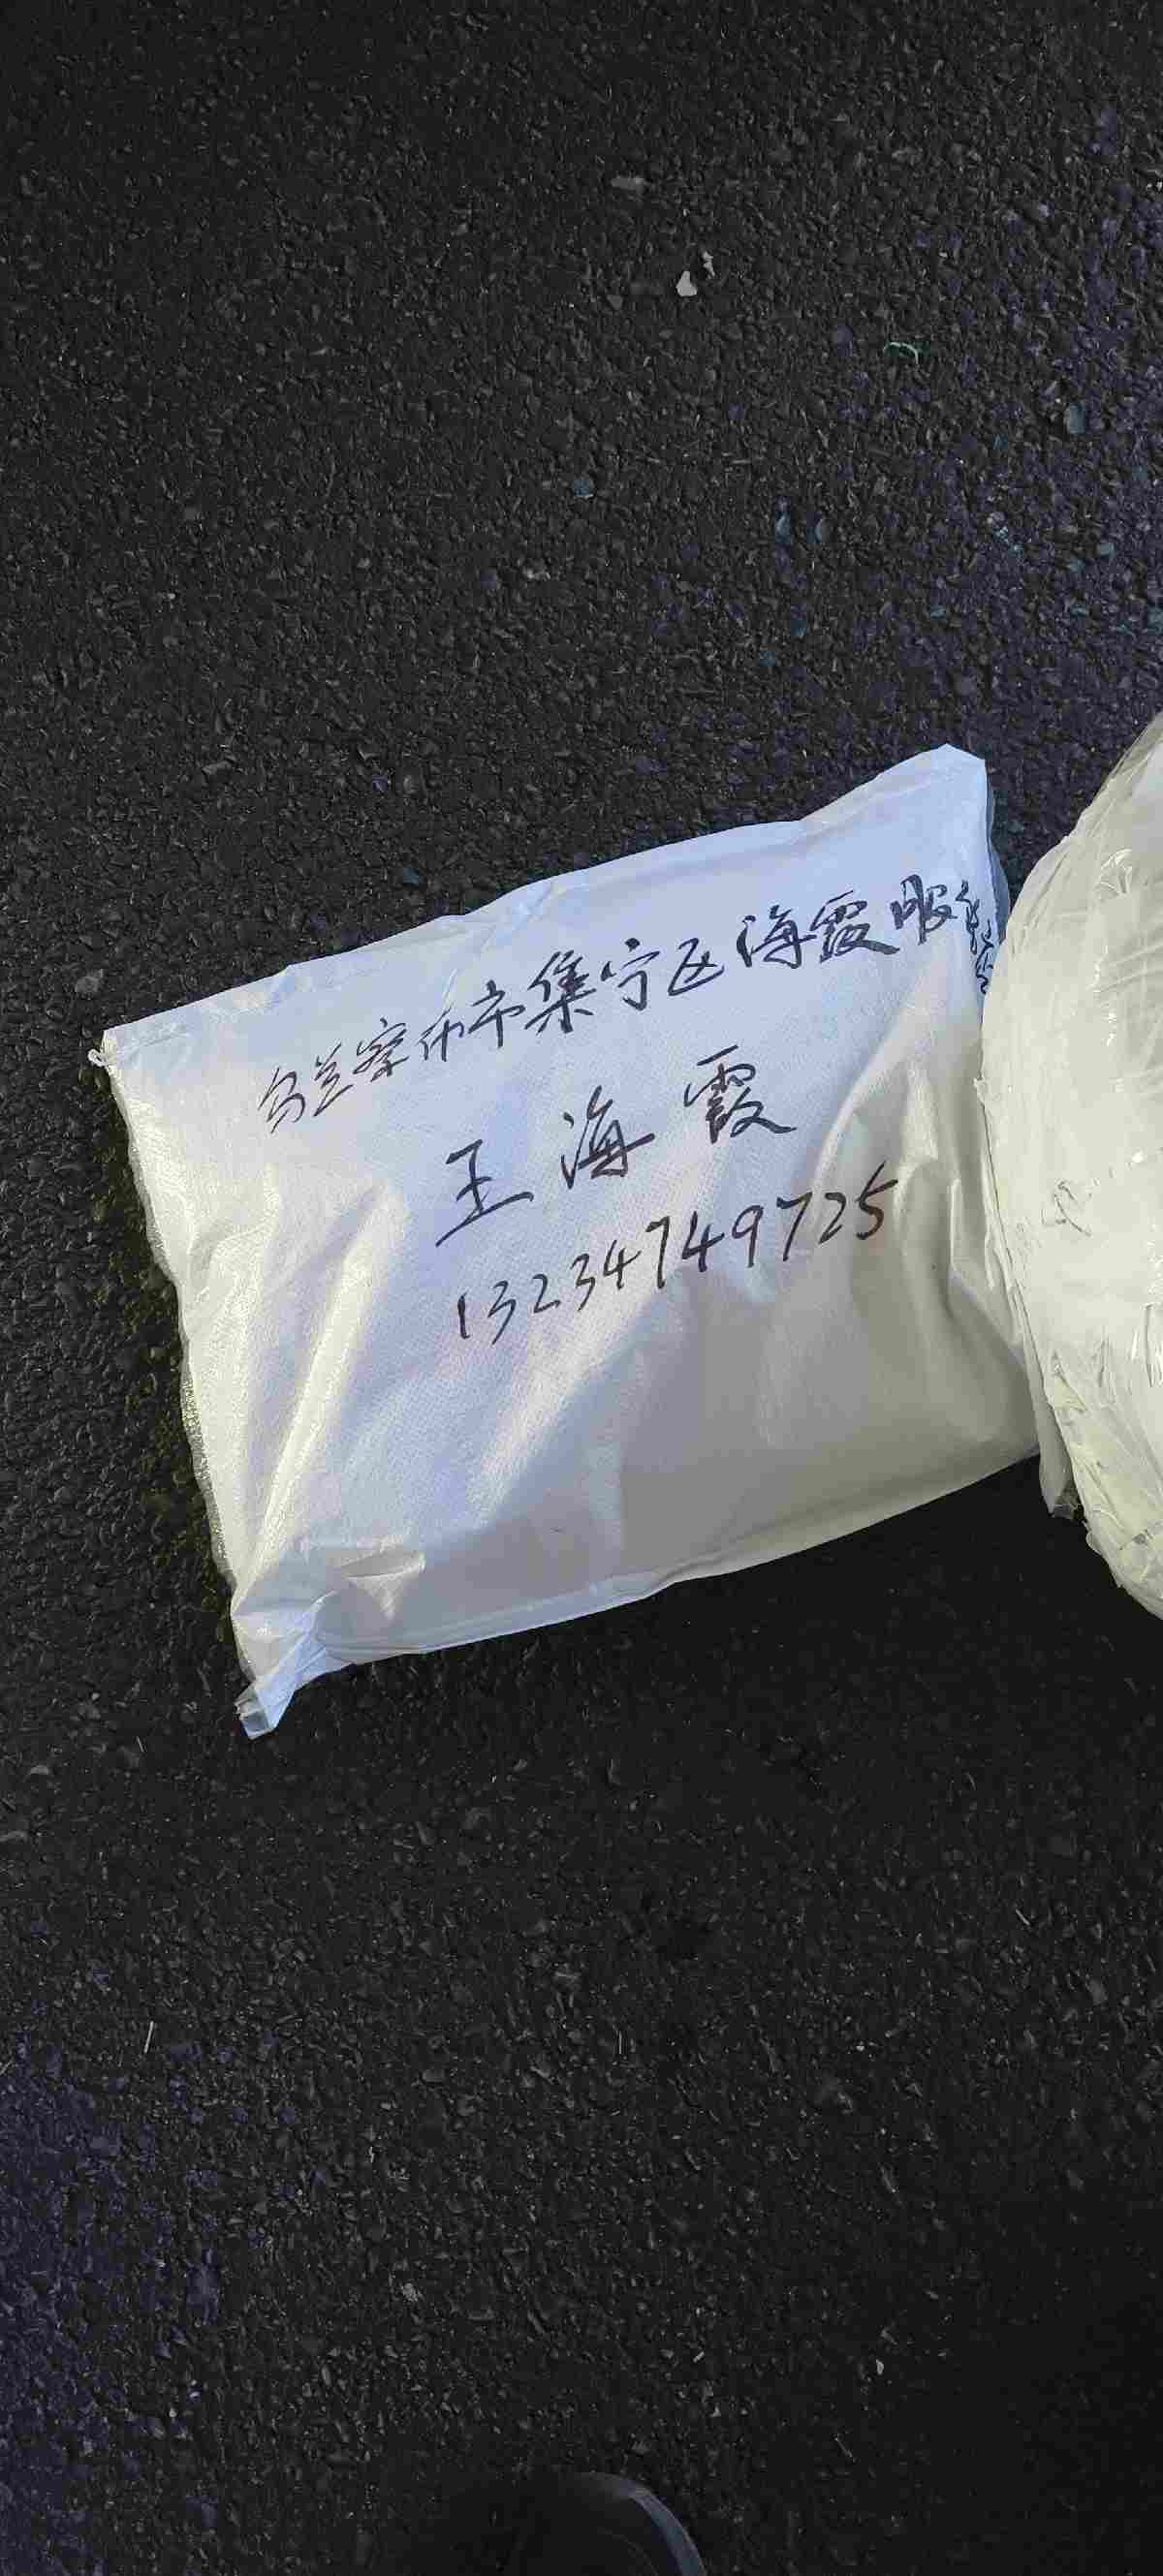 乌兰察布市集宁区海霞服装店
王海霞
13234749725